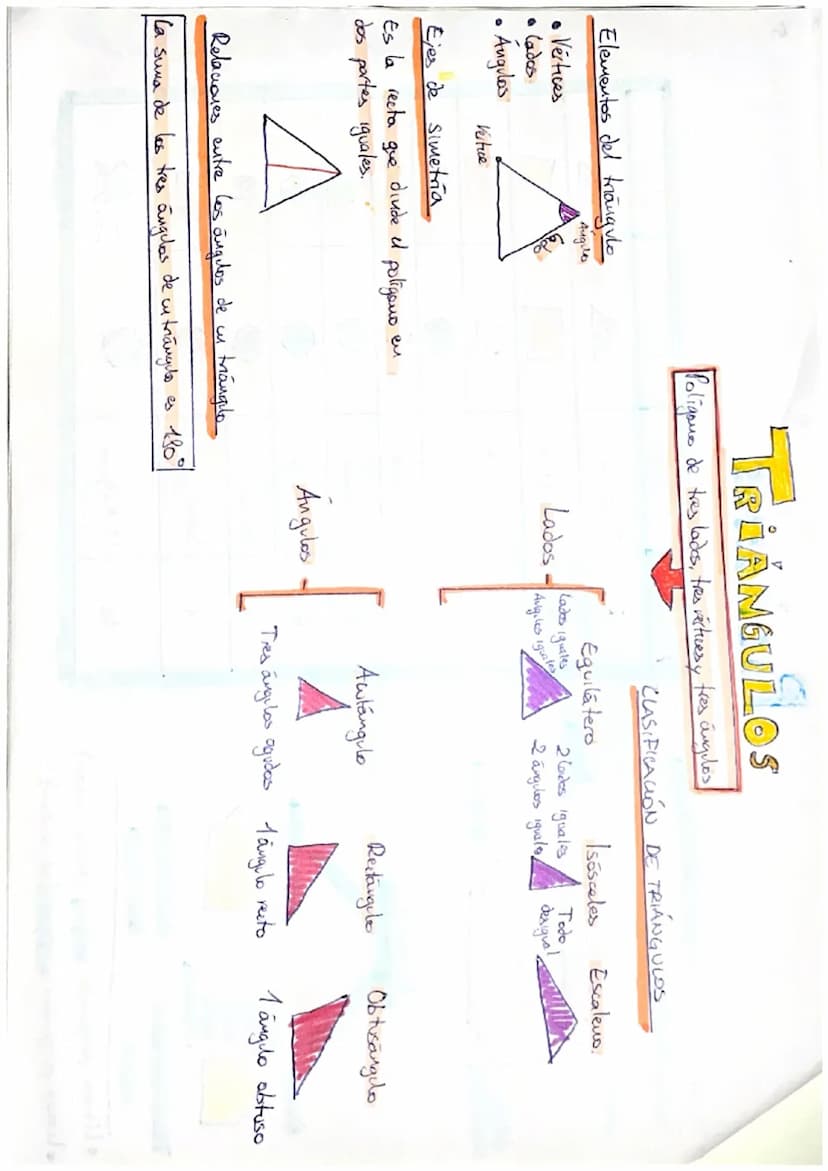 TRIÁNGULOS
Polígono de tres lados, tres vértices y tres ángulos
Elementos del triángulo
• Vértices
• Lados
• Ángulos
Ángulo
Lado
Vértice
Ejes de simetría
Es la recta que divide el polígono en
dos partes iguales.
Relaciones entre los ángulos de un triángulo
La suma de los tres ángulos de un triángulo es 180°
CLASIFICACIÓN DE TRIÁNGULOS
Lados
Equilátero
Lados iguales
Ángulos iguales
Isósceles
2 lados iguales
2 ángulos iguales
Escaleno
Todo
desigual
Ángulos
Acutángulo
Tres ángulos agudos
Rectángulo
1 ángulo recto
Obtusángulo
1 ángulo obtuso